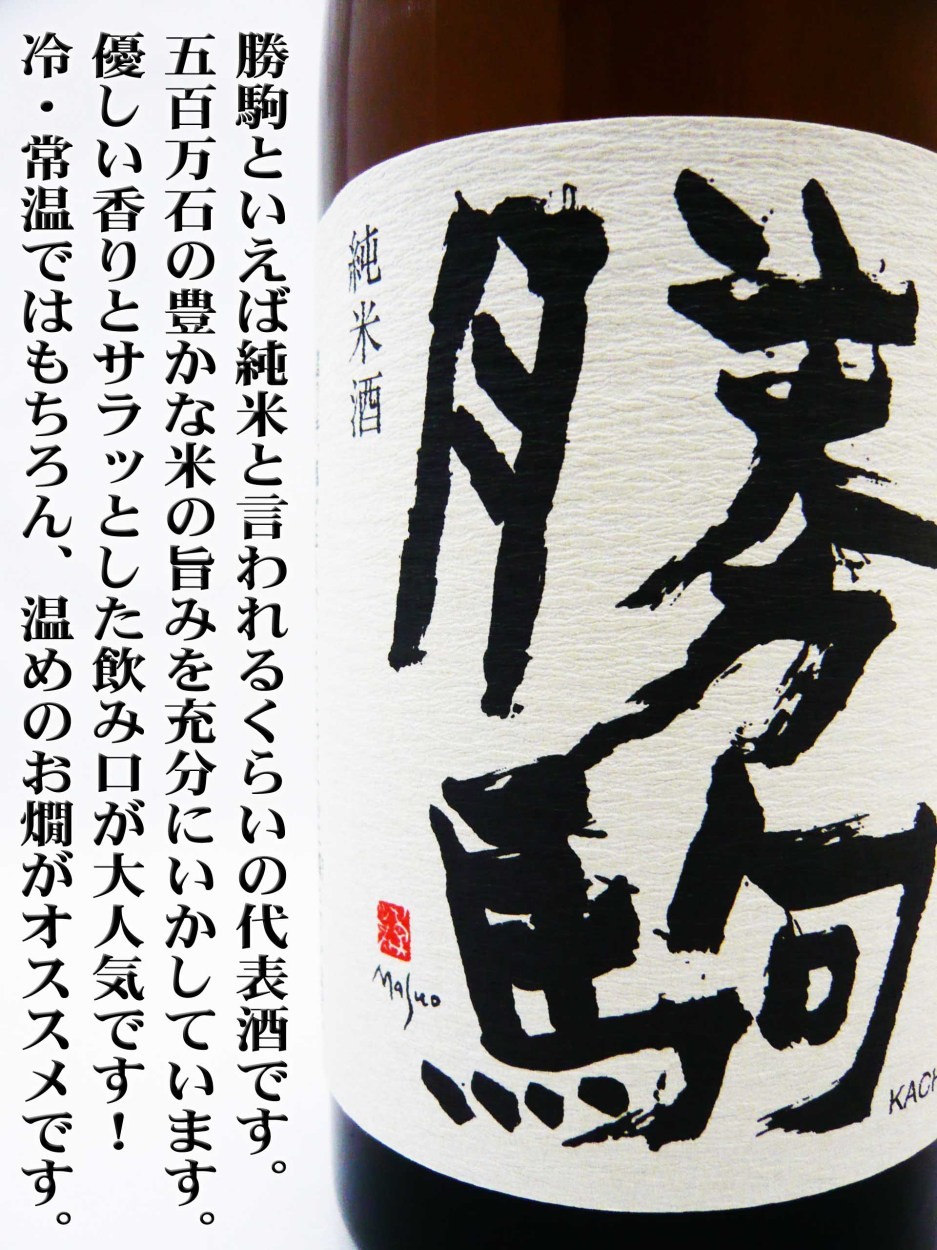 勝駒といえば純米と言われるくらいの代表酒です。
五百万石の豊かな米の旨みを充分にいかしています。
優しい香りとサラッとした飲み口が大人気です!
冷・常温ではもちろん、温めのお燗がオススメです。
勝駒
純米酒
Masuo
KACH